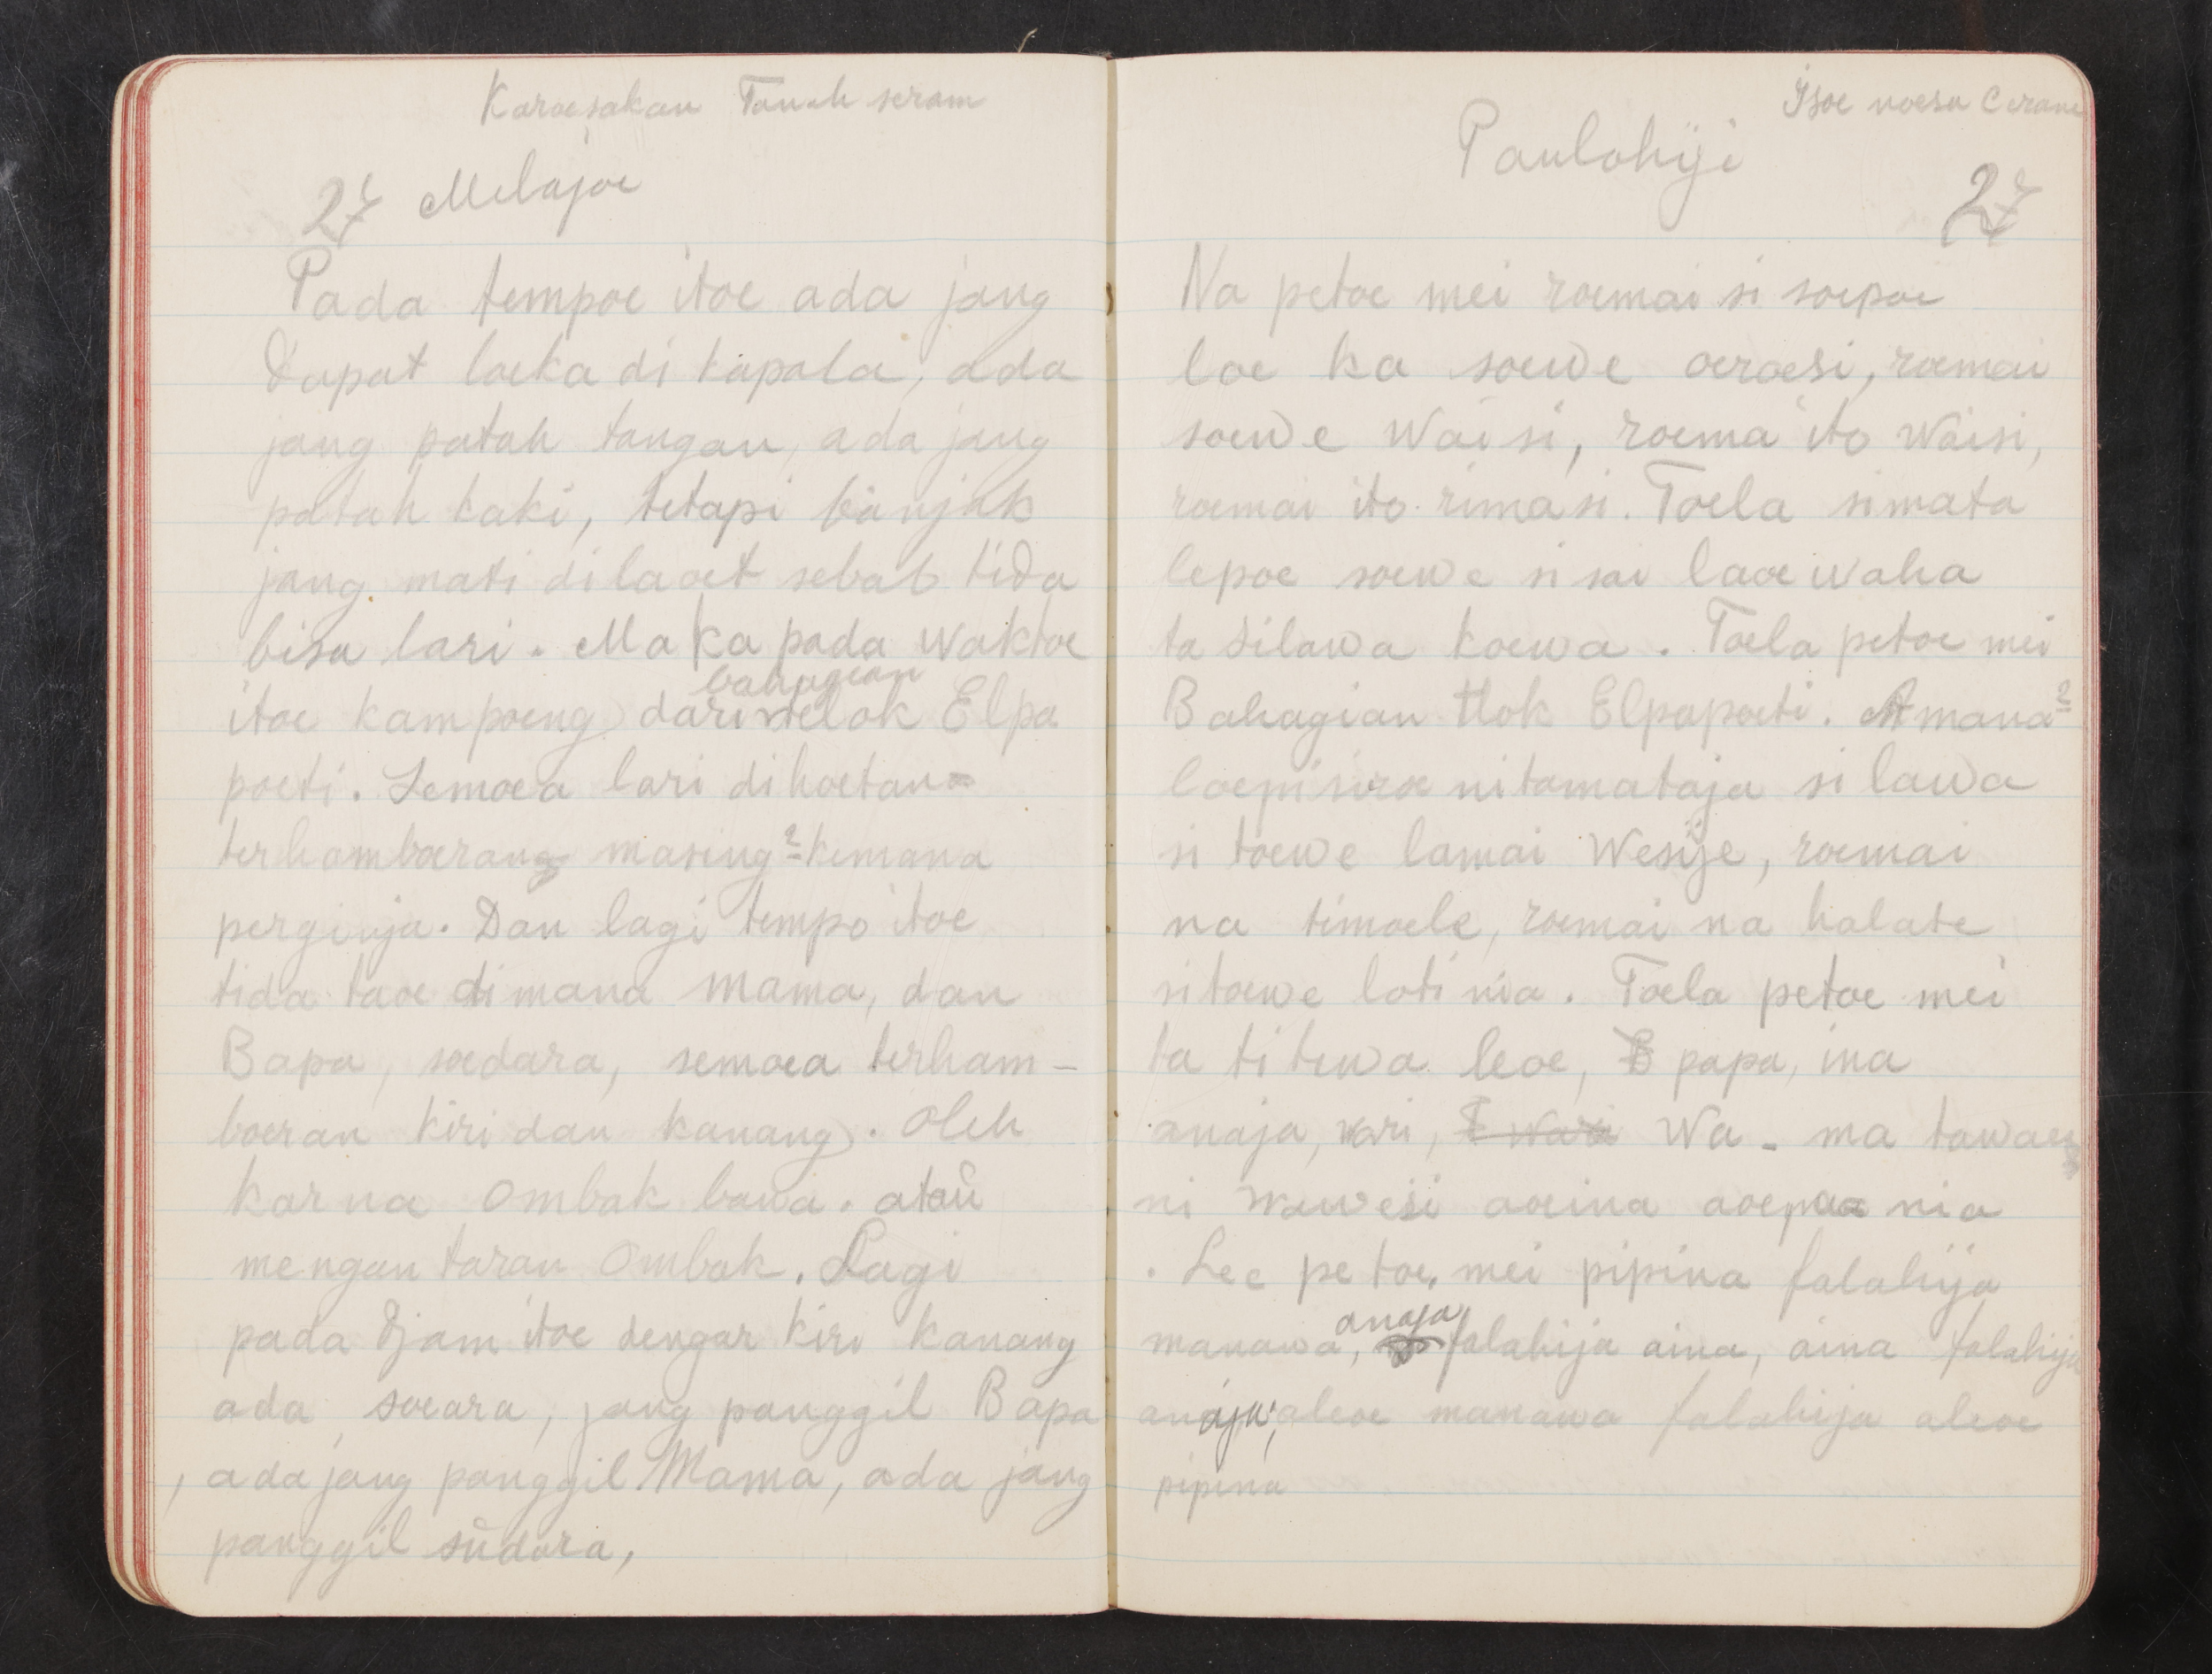 Karoesakan Tanah seram
27 Melajoe
Pada tempoe itoe ada jang
Dapat loeka di kapala, ada
jang patah tangan, ada jang
patah kaki, tetapi banjak
jang mati di laoet sebab tida
bisa lari. Maka pada waktoe
bahagian
itoe kampoeng dari telok Elpa
poeti. Semoea lari dihoetan
terhamboerang masing2 kemana
perginja. Dan lagi tempo itoe
tida taoe di mana mama, dan
Bapa, soedara, semoea terham-
boeran kiri dan kanang. Oleh
karna ombak bawa. ataŭ
mengantaran Ombak. Lagi
pada Djam itoe dengar kiri kanang
ada soeara, jang panggil Bapa
, ada jang panggil Mama, ada jang
panggil sŭdara,
Isoe noesa Ceram
Paulohiji
27
Na petoe mei roemai si soepoe
loe ka soewe oeroesi, roemai
soewe Waisi, roema ito Waisi,
roemai ito rimasi. Toela simata
lepoe soewe si sai laoe waha
ta silawa koewa. Toela petoe mei
Bahagian tlok Elpapoeti. Amana2
loepisiroe nitamataja si lawa
si toewe lamai Wesije, roemai
na timoele, roemai na halate
sitoewe loti nia. Toela petoe mei
ta ti tewa leoe, papa, ina
anaja, wari, Wa - ma tawaeng
ni wawesi aoeina aoepaa nia
. Lee petoe, mei pipina falahija
anaja
manawa, falahija aina, aina falahija
anaja; aleoe manawa falahija aleoe
pipina